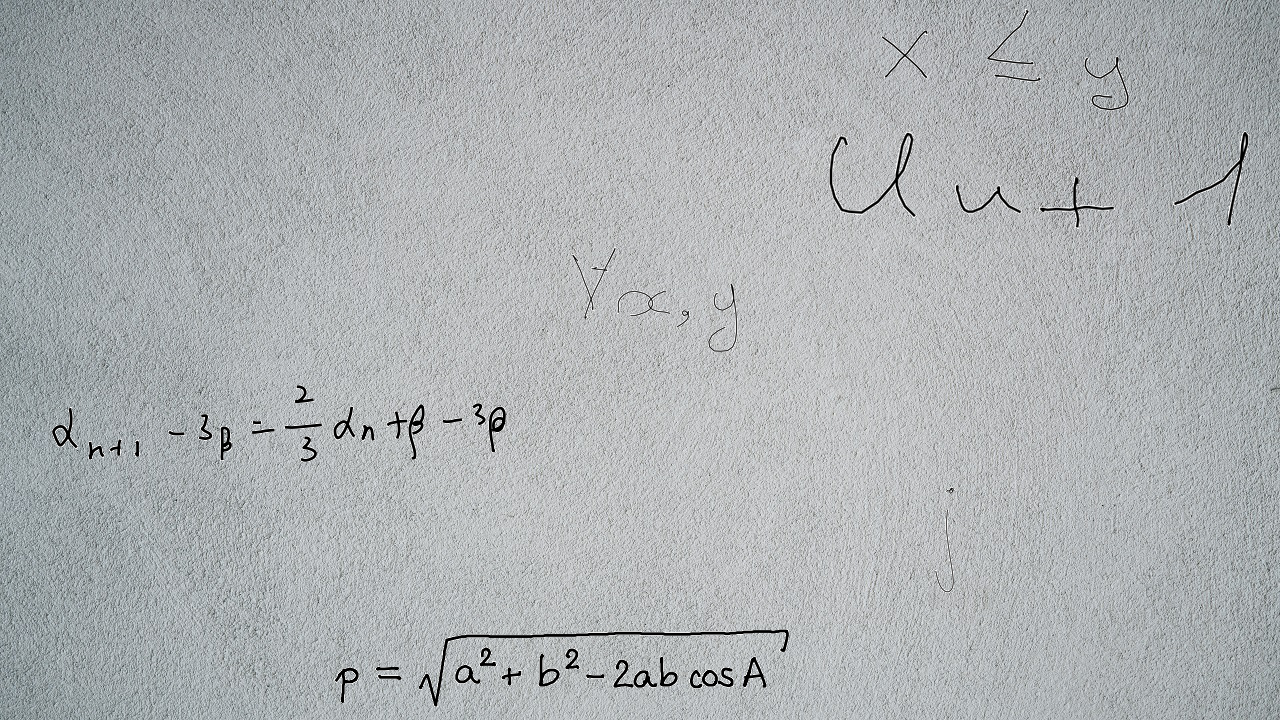 x ≤ y
U u + 1
∀x, y
α_{n+1} - 3β = \frac{2}{3} α_n + β - 3β
j
p = \sqrt{a^2 + b^2 - 2ab cos A}